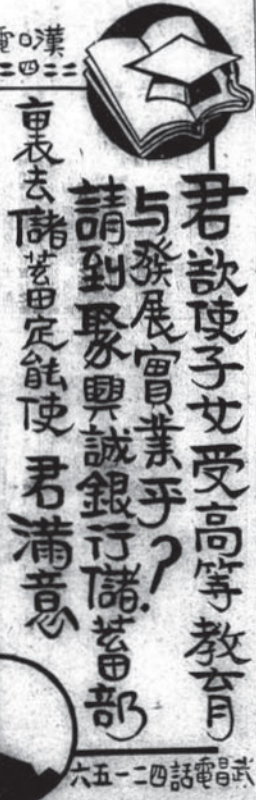 君欲使子女受高等教育
与發展實業乎?
請到聚興誠銀行儲蓄部
裏去儲蓄定能使君滿意
漢口電
二二四二
武昌電話四二一五六